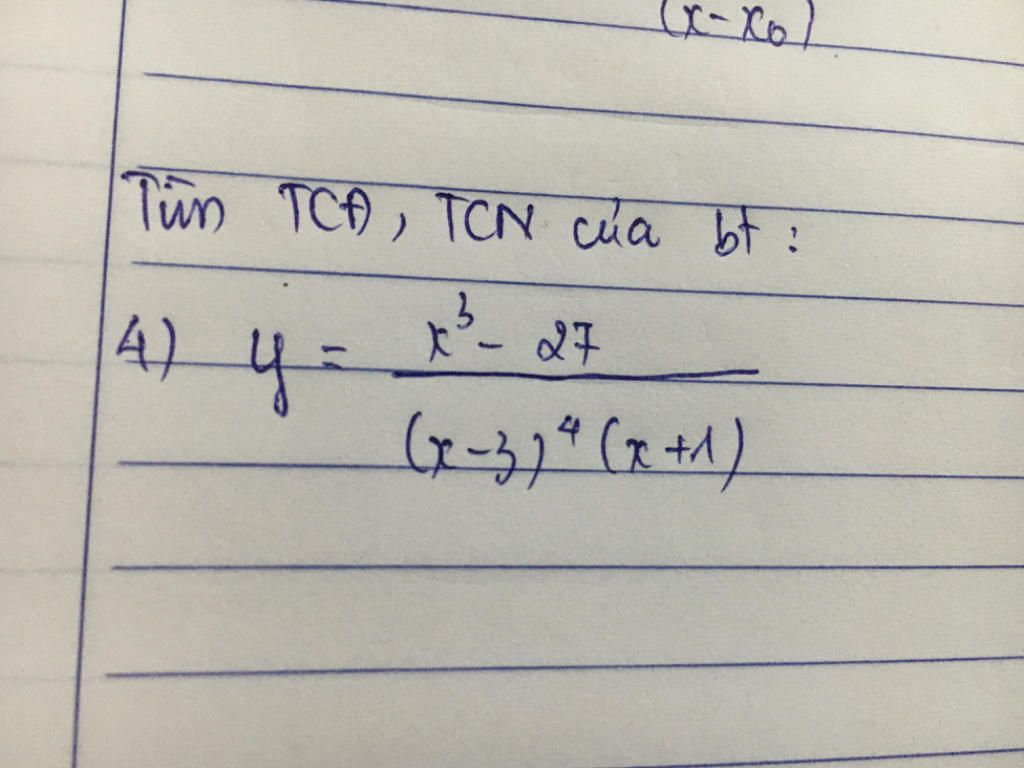 (x-x₀)
Tìm TCĐ, TCN của bt :
4) y = x³ - 27
(x-3)⁴ (x+1)